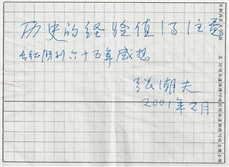 历史的经验值得注意
长征胜利六十五年感想
张湖夫
2001年2月